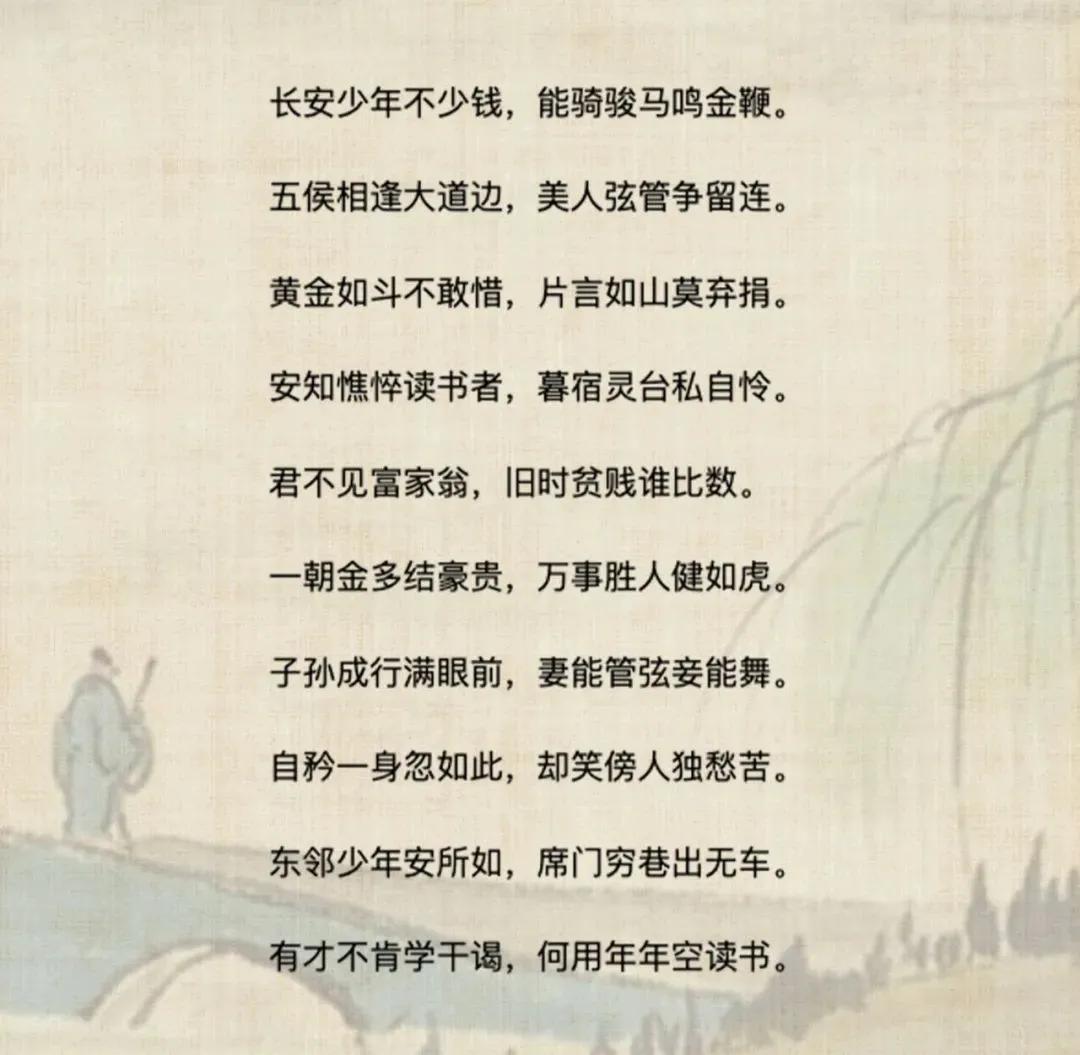 长安少年不少钱，能骑骏马鸣金鞭。
五侯相逢大道边，美人弦管争留连。
黄金如斗不敢惜，片言如山莫弃捐。
安知憔悴读书者，暮宿灵台私自怜。
君不见富家翁，旧时贫贱谁比数。
一朝金多结豪贵，万事胜人健如虎。
子孙成行满眼前，妻能管弦妾能舞。
自矜一身忽如此，却笑傍人独愁苦。
东邻少年安所如，席门穷巷出无车。
有才不肯学干谒，何用年年空读书。